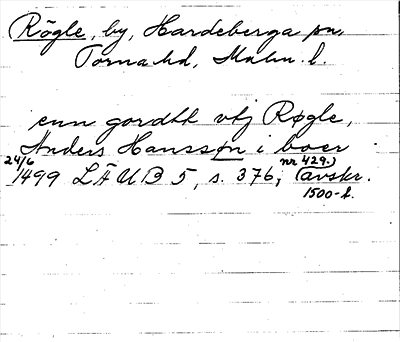 Rögle, by, Hardeberga sn,
Torna hd, Malm. l.
enn gordtt vtj Røgle,
Anders Hanssøn i boer
24/6 1499 LÄUB 5, s. 376, nr 429. (avskr.
1500-t.